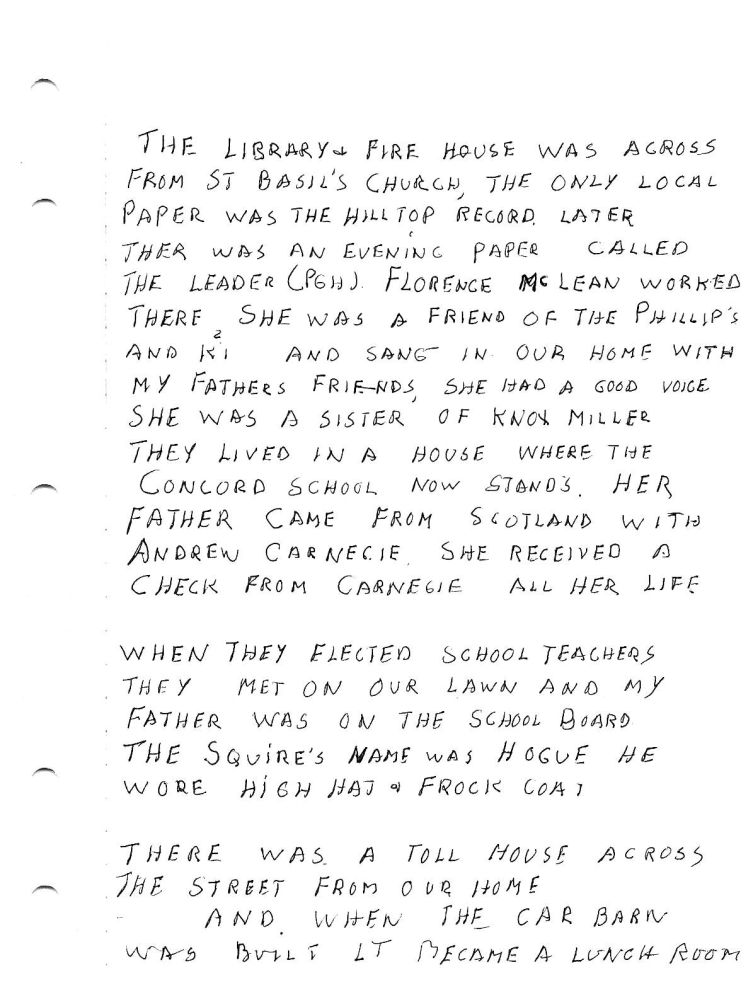 THE LIBRARY & FIRE HOUSE WAS ACROSS
FROM ST BASIL'S CHURCH, THE ONLY LOCAL
PAPER WAS THE HILLTOP RECORD. LATER
THER WAS AN EVENING PAPER CALLED
THE LEADER (PGH). FLORENCE McLEAN WORKED
THERE, SHE WAS A FRIEND OF THE PHILLIP'S
AND AND SANG IN OUR HOME WITH
MY FATHERS FRIENDS, SHE HAD A GOOD VOICE
SHE WAS A SISTER OF KNOX MILLER
THEY LIVED IN A HOUSE WHERE THE
CONCORD SCHOOL NOW STANDS. HER
FATHER CAME FROM SCOTLAND WITH
ANDREW CARNEGIE. SHE RECEIVED A
CHECK FROM CARNEGIE ALL HER LIFE
WHEN THEY ELECTED SCHOOL TEACHERS
THEY MET ON OUR LAWN AND MY
FATHER WAS ON THE SCHOOL BOARD
THE SQUIRE'S NAME WAS HOGUE HE
WORE HIGH HAT & FROCK COAT
THERE WAS A TOLL HOUSE ACROSS
THE STREET FROM OUR HOME
AND WHEN THE CAR BARN
WAS BUILT IT BECAME A LUNCH ROOM